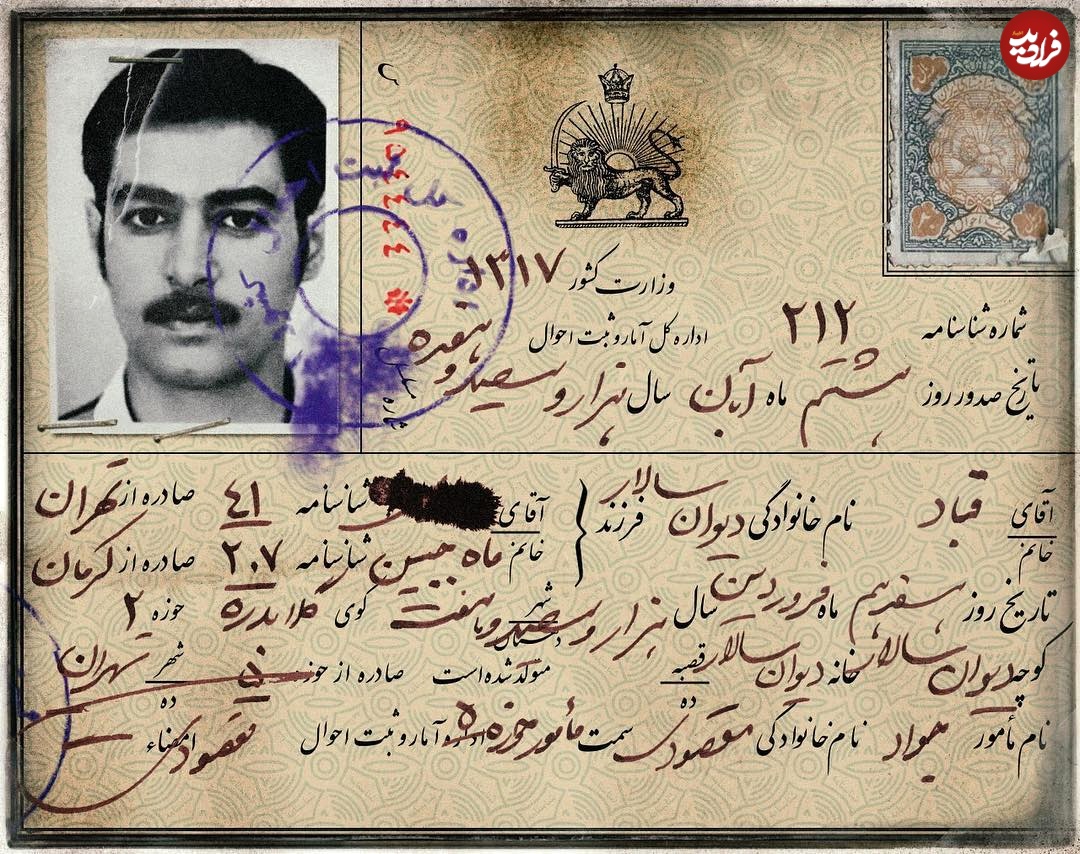 فرادید
وزارت کشور ۱۳۱۷
اداره کل آمار و ثبت احوال
شماره شناسنامه ۲۱۲
تاریخ صدور روز هشتم ماه آبان سال هزار و سیصد و هفده
آقای خانم قباد نام خانوادگی دیوان سالار فرزند
آقای شناسنامه ٤١ صادره از تهران
خانم ماه جبین شناسنامه ۲۰۷ صادره از کرمان
تاریخ روز هفدهم ماه فروردین سال هزار و سیصد و هفت شهر کوی گلابدره حوزه ۲
کوچه دیوان سالار خانه دیوان سالار قصبه ده متولد شده است صادره از حوزه ۵ شهر ده تهران
نام مأمور جواد نام خانوادگی مقصودی سمت مأمور حوزه ۵ اداره آمار و ثبت احوال امضاء مقصودی